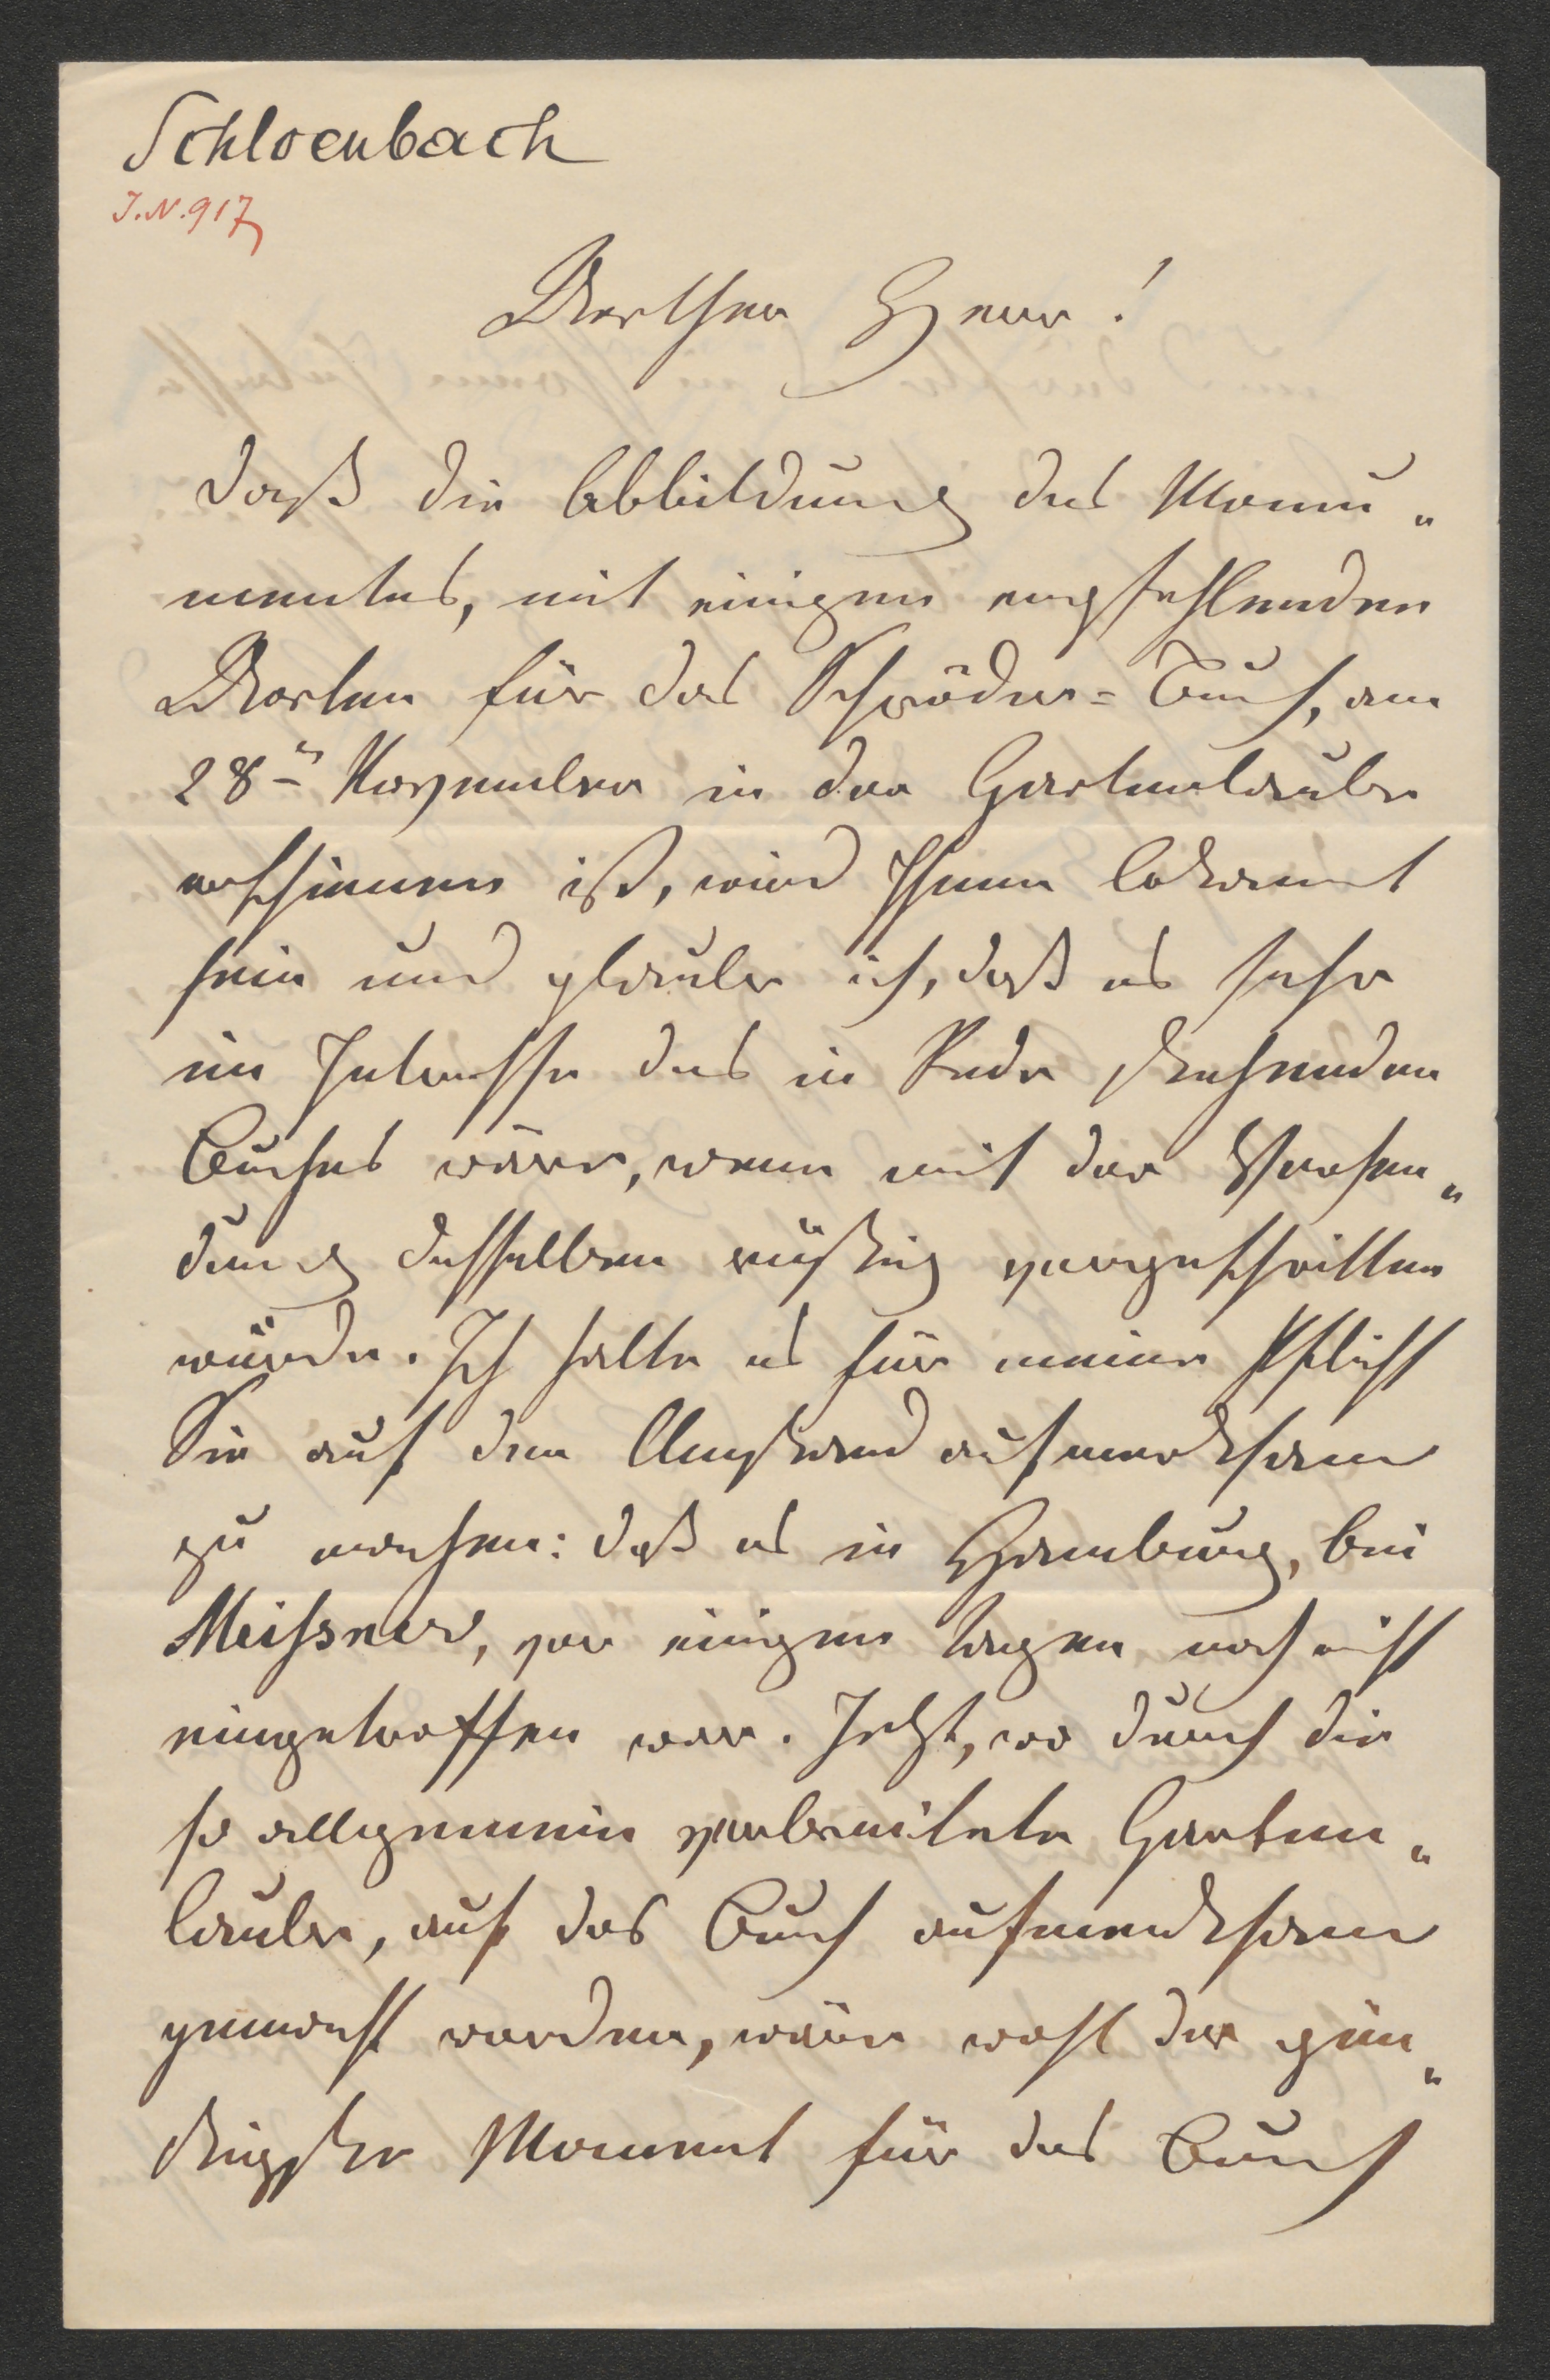 Schloenbach
J.N. 917
Werther Herr!
Daß die Abbildung des Monu„
mentes, mit einigen empfehlenden
Worten für das Schröder-Buch, am
28n November in der Gartenlaube
erschienen ist, wird Ihnen bekannt
sein und glaube ich, daß es sehr
im Interesse des in Rede stehenden
Buches wäre, wenn mit der Versen„
dung desselben rüstig vorgeschritten
würde. Ich halte es für meine Pflicht
Sie auf den Umstand aufmerksam
zu machen: daß es in Hamburg, bei
Meissner, vor einigen Tagen noch nicht
eingetroffen war. Jetzt, wo durch die
so allgemein verbreitete Garten„
laube, auf das Buch aufmerksam
gemacht worden, wäre wohl der gün„
stigste Moment für das Buch